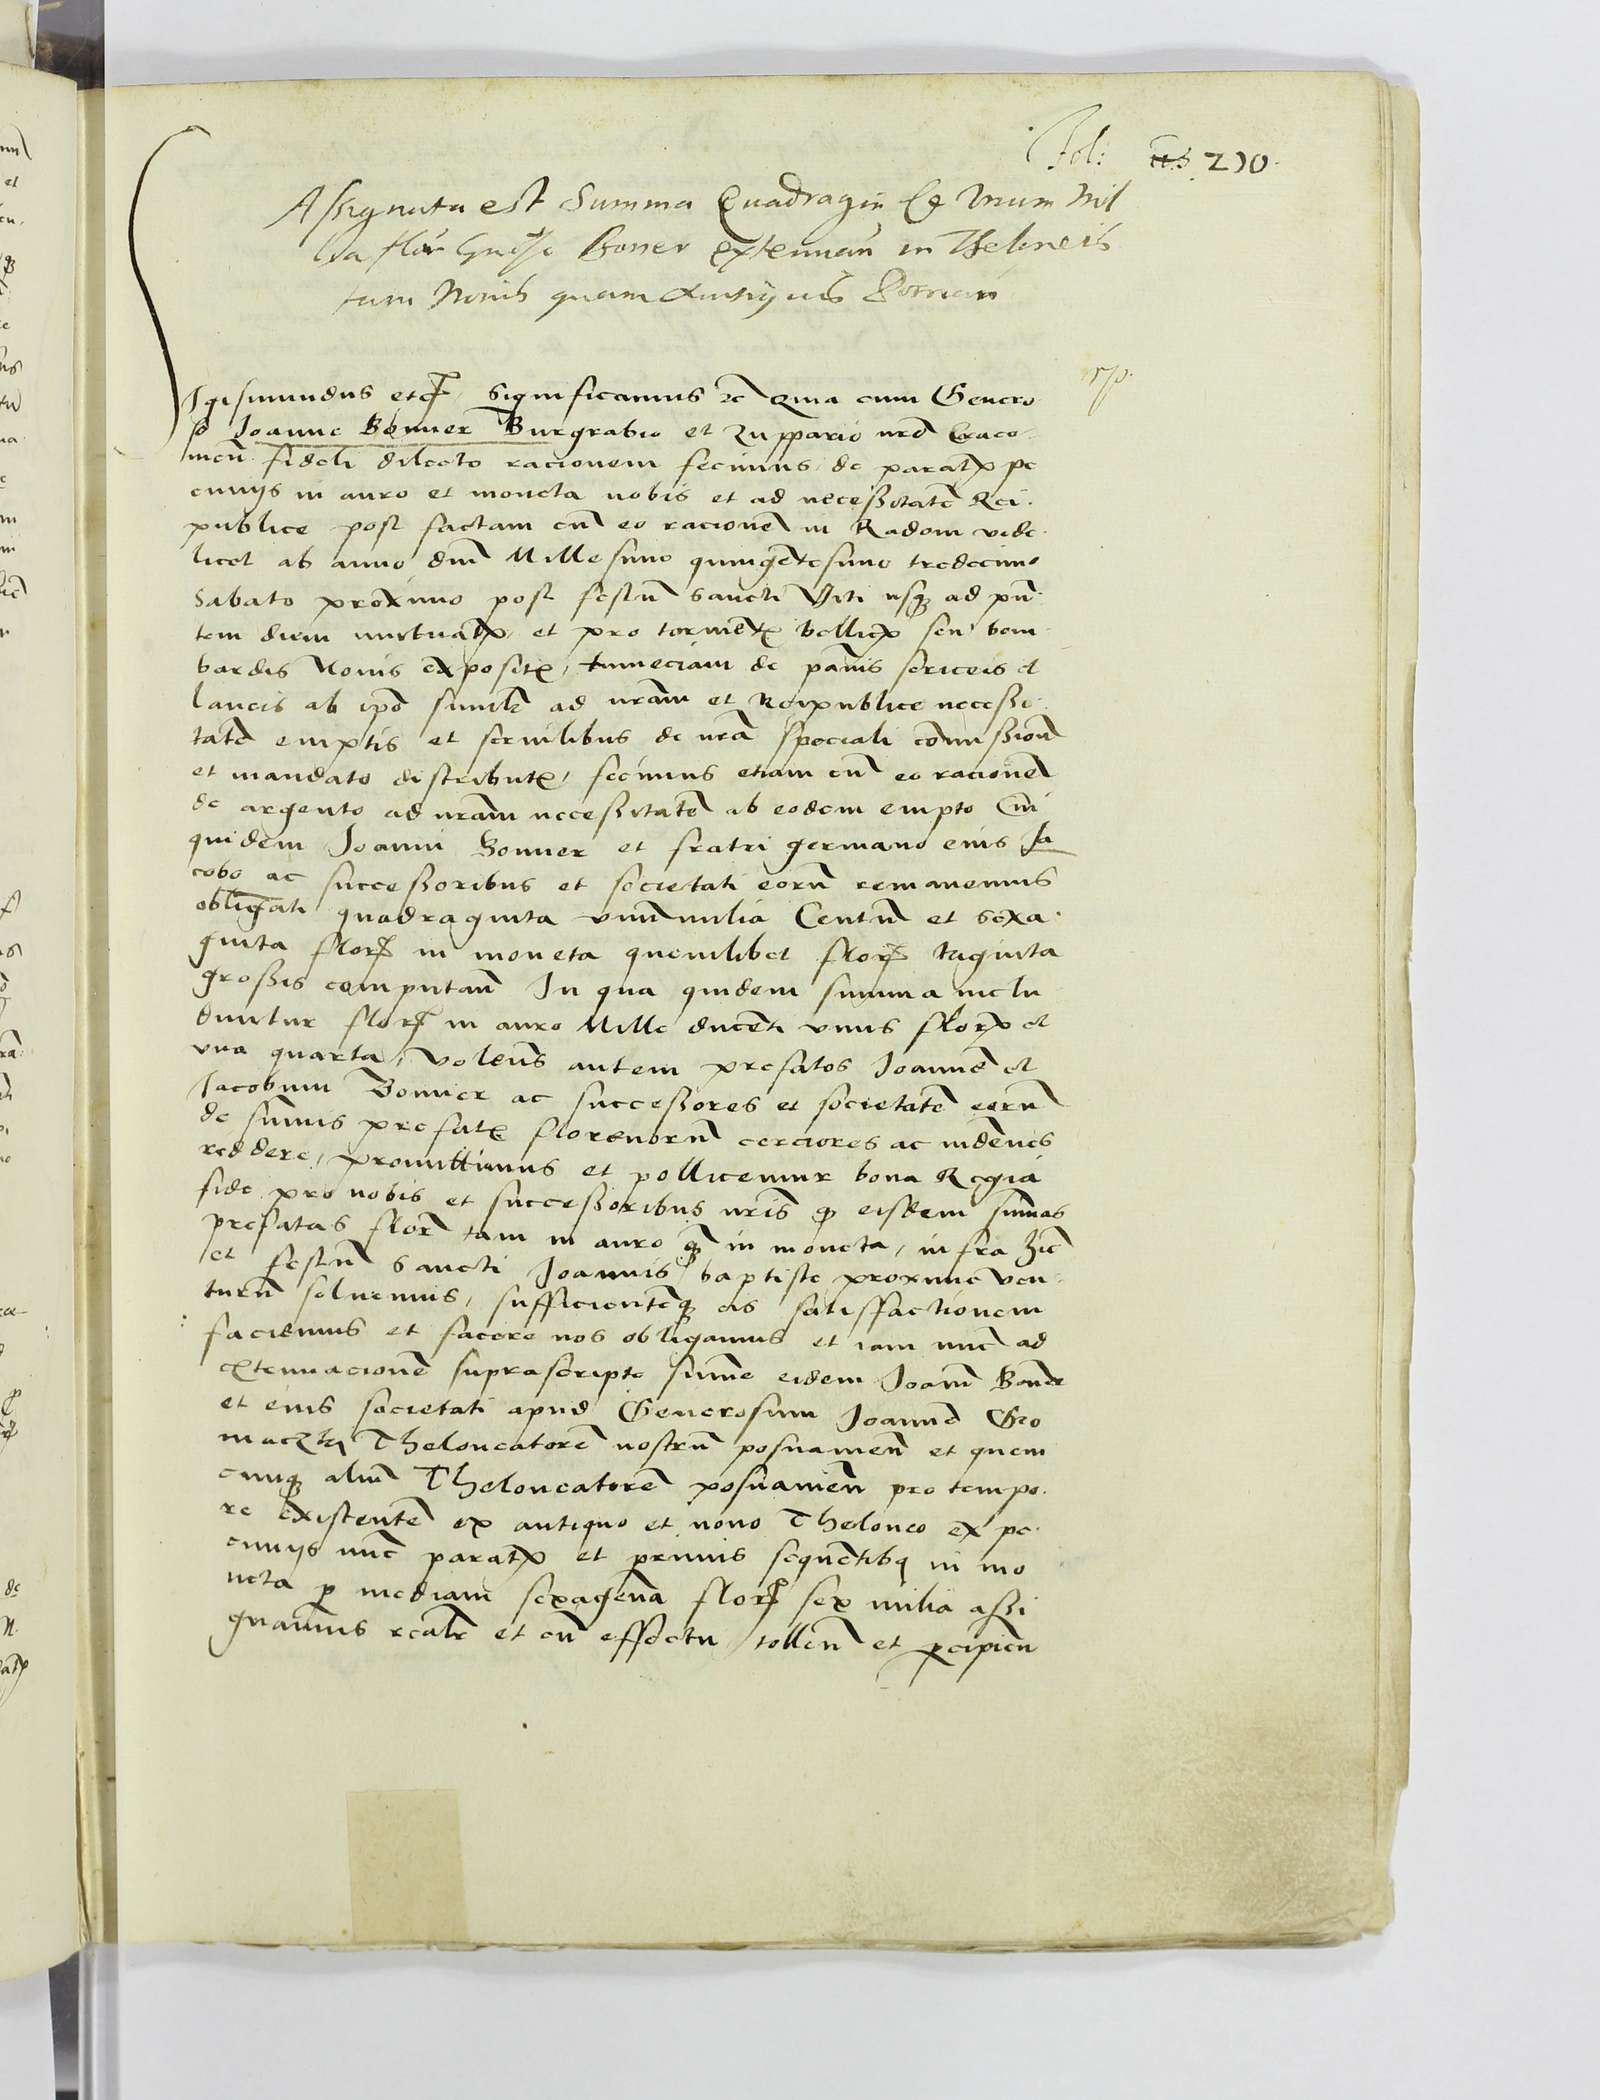 Fol: 210.
Assignata est Summa Quadragin et Unum Mil
lia flor Gnoso Boner extenuan in Theloneis
tam Novis quam Antiquis
Igismundus etc Significamus etc Quia cum Genero
so Joanne Bonner Burgrabio et Zuppario nro Craco
vien fideli dilecto racionem fecimus de paratis pe
cunijs in auro et moneta nobis et ad necessitate Rei
publice post factam cu eo racione in Radom vide
licet ab anno dni Millesimo quingetesimo tredecimo
Sabato proximo post festu Sancti Viti usq ad pn
tem diem mutuatis et pro tormetis bellicis seu bom
bardis Novis expositis, tumeciam de panis sericeis et
laneis ab ipo similr ad nram et Reipublice necessi
tate emptis et servilibus de nra speciali comission
et mandato distributis, fecimus etiam cu eo racione
de argento ad nram necessitate ab eodem empto Cui
quidem Joanni Bonner et fratri germano eius Ja
cobo ac successoribus et societati eoru remanemus
obligati quadraginta unu milia Centu et sexa
ginta flor in moneta quemlibet flor triginta
grossis computan In qua quidem summa inclu
duntur flor in auro Mille ducenti unus flor et
una quarta, volens autem prefatos Joanne et
Jacobum Bonner ac successores et societate eoru
de sumis prefatis florenoru cerciores ac indenes
reddere, promittimus et pollicemur bona Regia
fide pro nobis et successoribus nris q eisdem sumas
prefatas flor tam in auro q in moneta, infra hic
et festu Sancti Joannis baptiste proxime ven
turu solvemus, sufficienteq eis satisfactionem
faciemus et facere nos obligamus et iam nuc ad
extenuacione suprascripte sume eidem Joan Boner
et eius societati apud Generosum Joanne Gro
maczky Theloneatore nostru posnanien et quem
cunq aliu Theloneatore posnanien pro tempo
re existente ex antiquo et novo Theloneo ex pe
cunijs nuc paratis et primis sequetibq in mo
neta p mediam sexagena flor sex milia assi
gnavimus realr et cu effectu tollen et pcipien